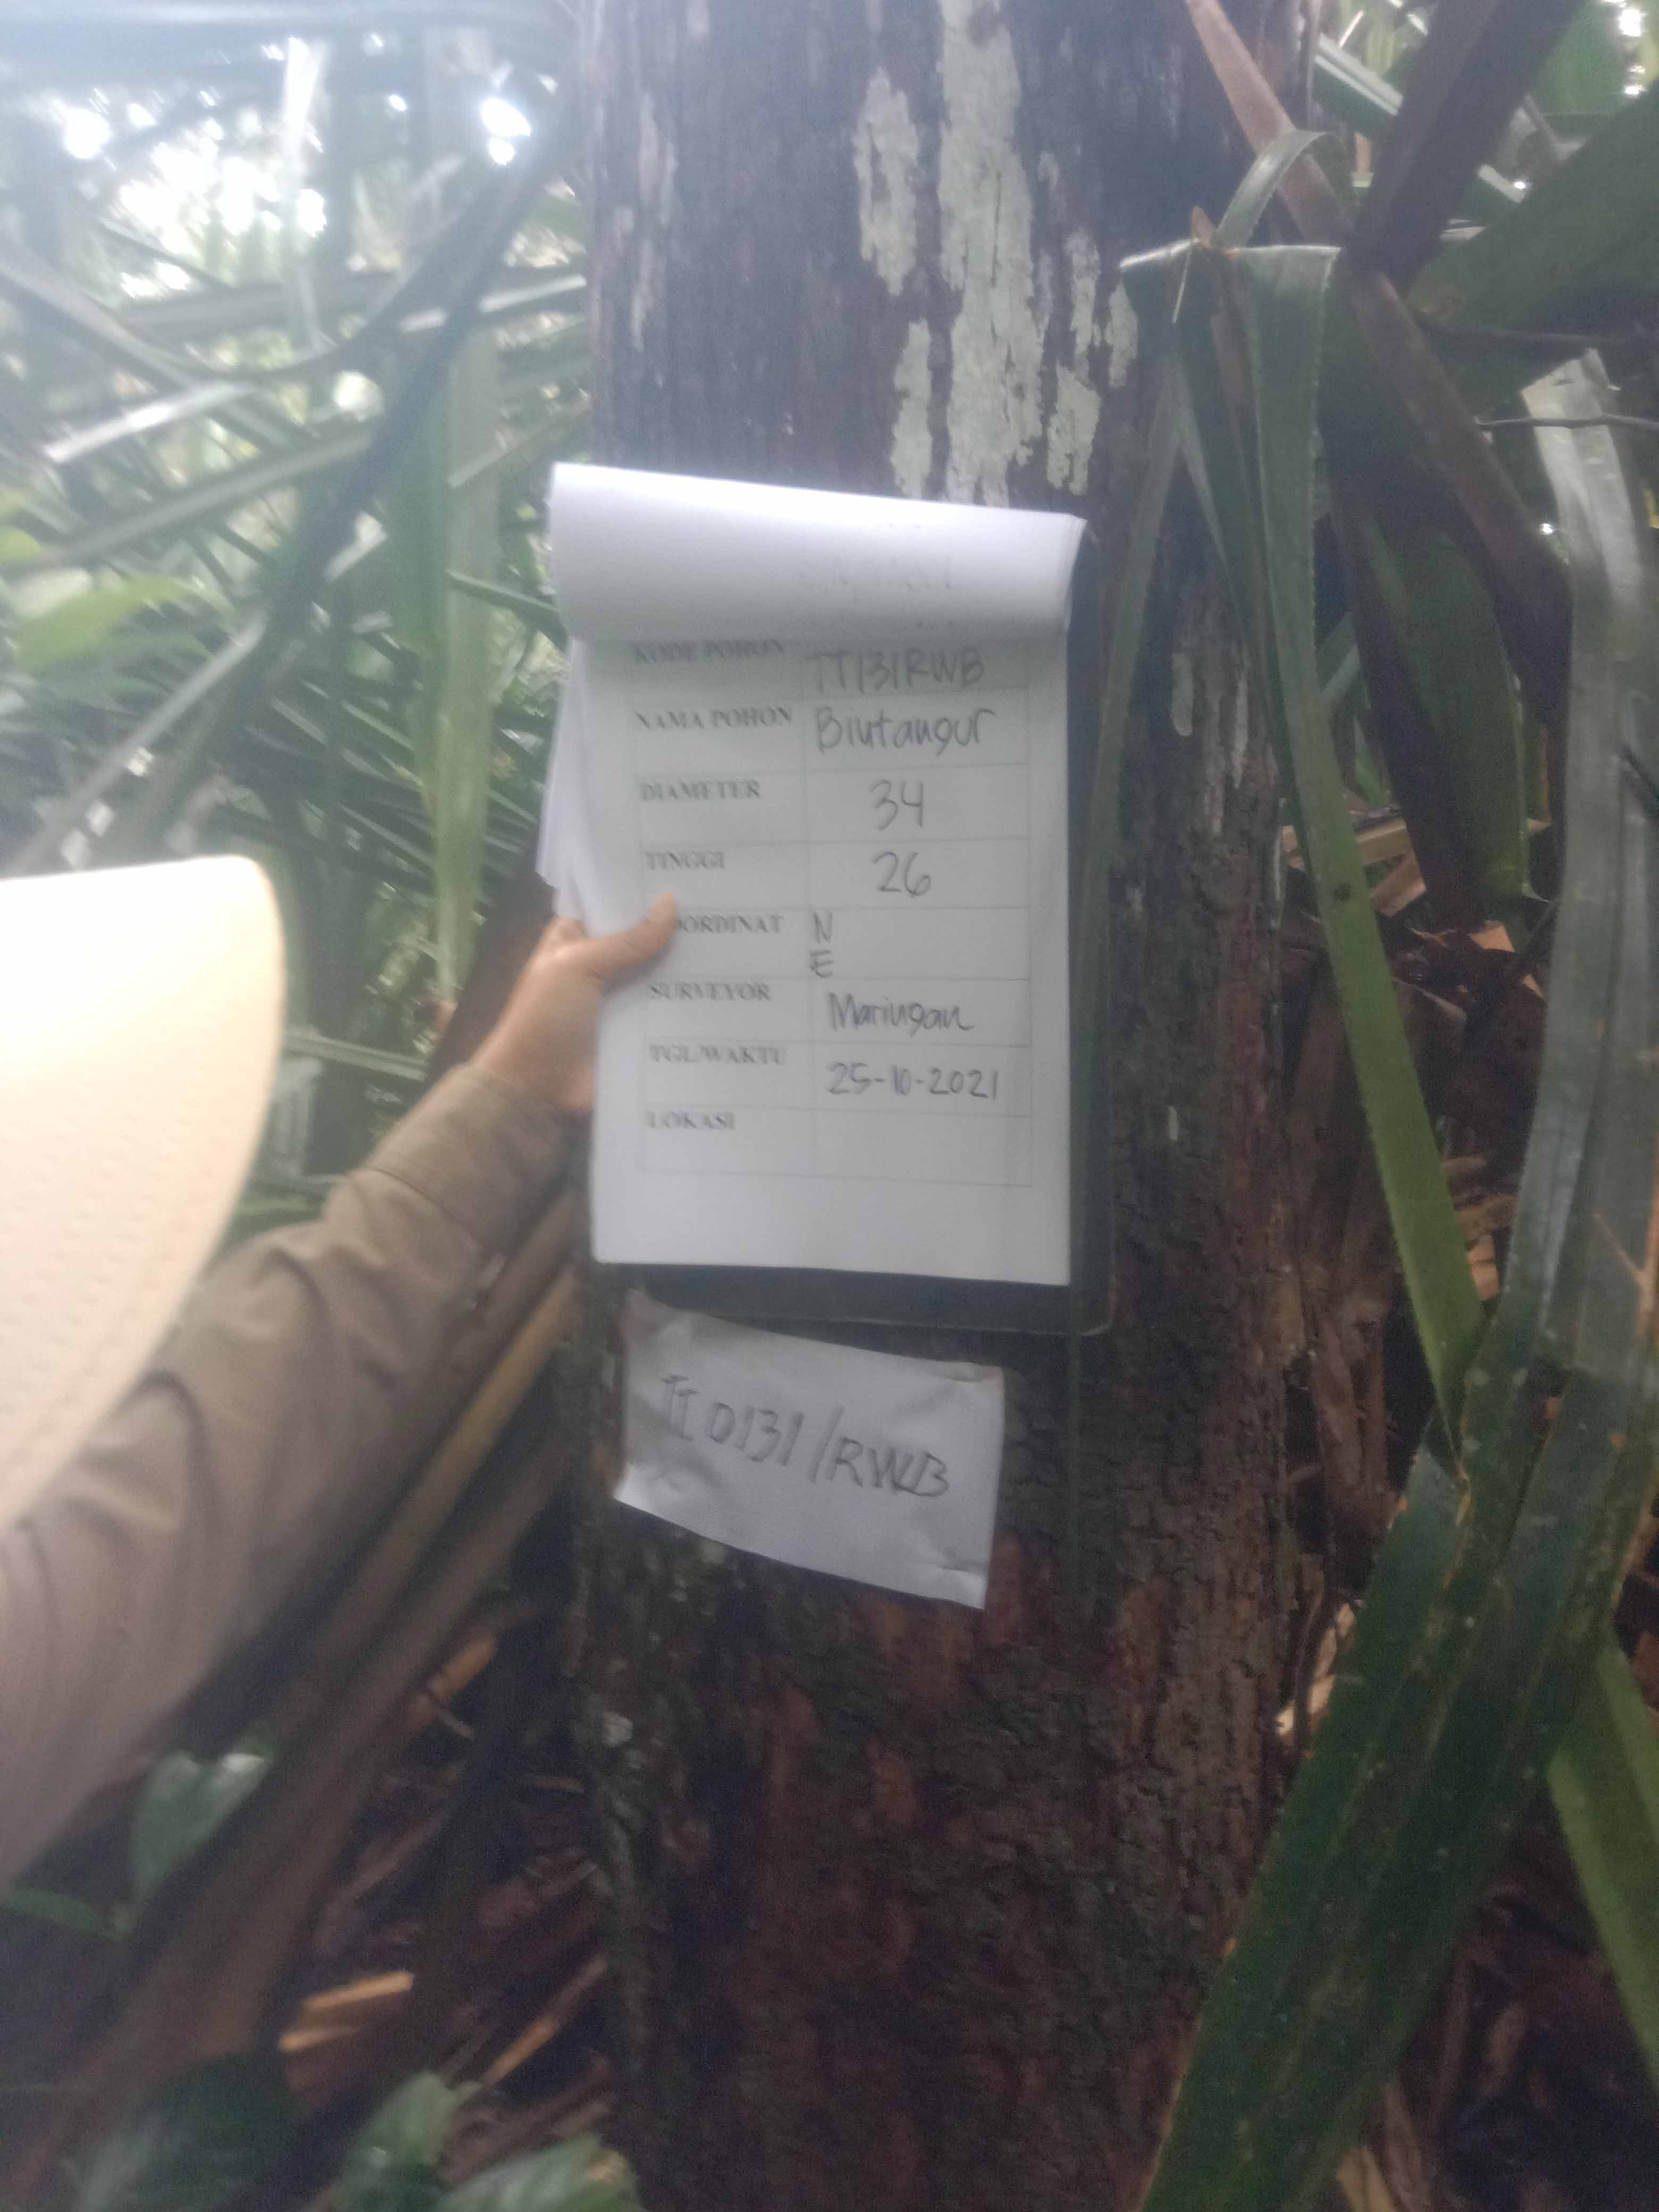 KODE POHON TT131RWB
NAMA POHON Biutangur
DIAMETER 34
TINGGI 26
OORDINAT N
E
SURVEYOR Maringan
TGL/WAKTU 25-10-2021
LOKASI
TT 0131/RWB